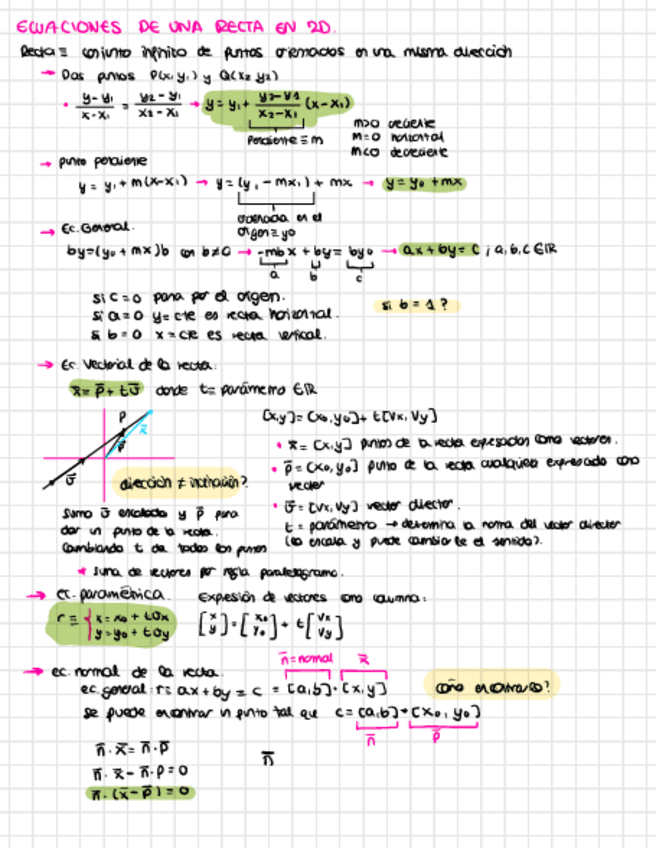 ECUACIONES DE UNA RECTA EN 2D.
Recta ≡ conjunto infinito de puntos orientados en una misma dirección
→ Dos puntos P(x₁ y₁) y Q(x₂ y₂)
• y-y₁ / x-x₁ = y₂-y₁ / x₂-x₁ → y = y₁ + y₂-y₁ / x₂-x₁ (x-x₁)
pendiente ≡ m
m>0 creciente
m=0 horizontal
m<0 decreciente
→ punto pendiente
y = y₁ + m(x-x₁) → y = (y₁ - mx₁) + mx → y = y₀ + mx
ordenada en el
origen ≡ y₀
→ Ec. General.
by = (y₀ + mx)b con b≠0 → -mbx + by = by₀ → ax + by = c ; a, b, c ∈ ℝ
a b c
si c = 0 pasa por el origen.
si a = 0 y = cte es recta horizontal.
si b = 0 x = cte es recta vertical.
si b = 1 ?
→ Ec. Vectorial de la recta:
x̄ = p̄ + tv̄ donde t = parámetro ∈ ℝ
[x,y] = [x₀,y₀] + t[Vx, Vy]
• x̄ = [x,y] puntos de la recta expresados como vectores.
• p̄ = [x₀, y₀] punto de la recta cualquiera expresado como
vector
• v̄ = [Vx, Vy] vector director.
t = parámetro → determina la norma del vector director
(lo escala y puede cambiarle el sentido).
P
x̄
p̄
v̄
dirección ≠ inclinación?
Sumo v̄ escalado y p̄ para
dar un punto de la recta.
Cambiando t da todos los puntos
* suma de vectores por regla paralelogramo.
→ ec. paramétrica. Expresión de vectores como columna:
r ≡ { x = x₀ + tvx
y = y₀ + tvy
[x y] = [x₀ y₀] + t[Vx Vy]
→ ec. normal de la recta.
n̄ = normal x̄
ec. general: r ≡ ax + by = c = [a,b] · [x,y]
como encontrarlo?
se puede encontrar un punto tal que c = [a,b] · [x₀, y₀]
n̄ p̄
n̄ · x̄ = n̄ · p̄
n̄
n̄ · x̄ - n̄ · p = 0
n̄ · (x̄ - p̄) = 0